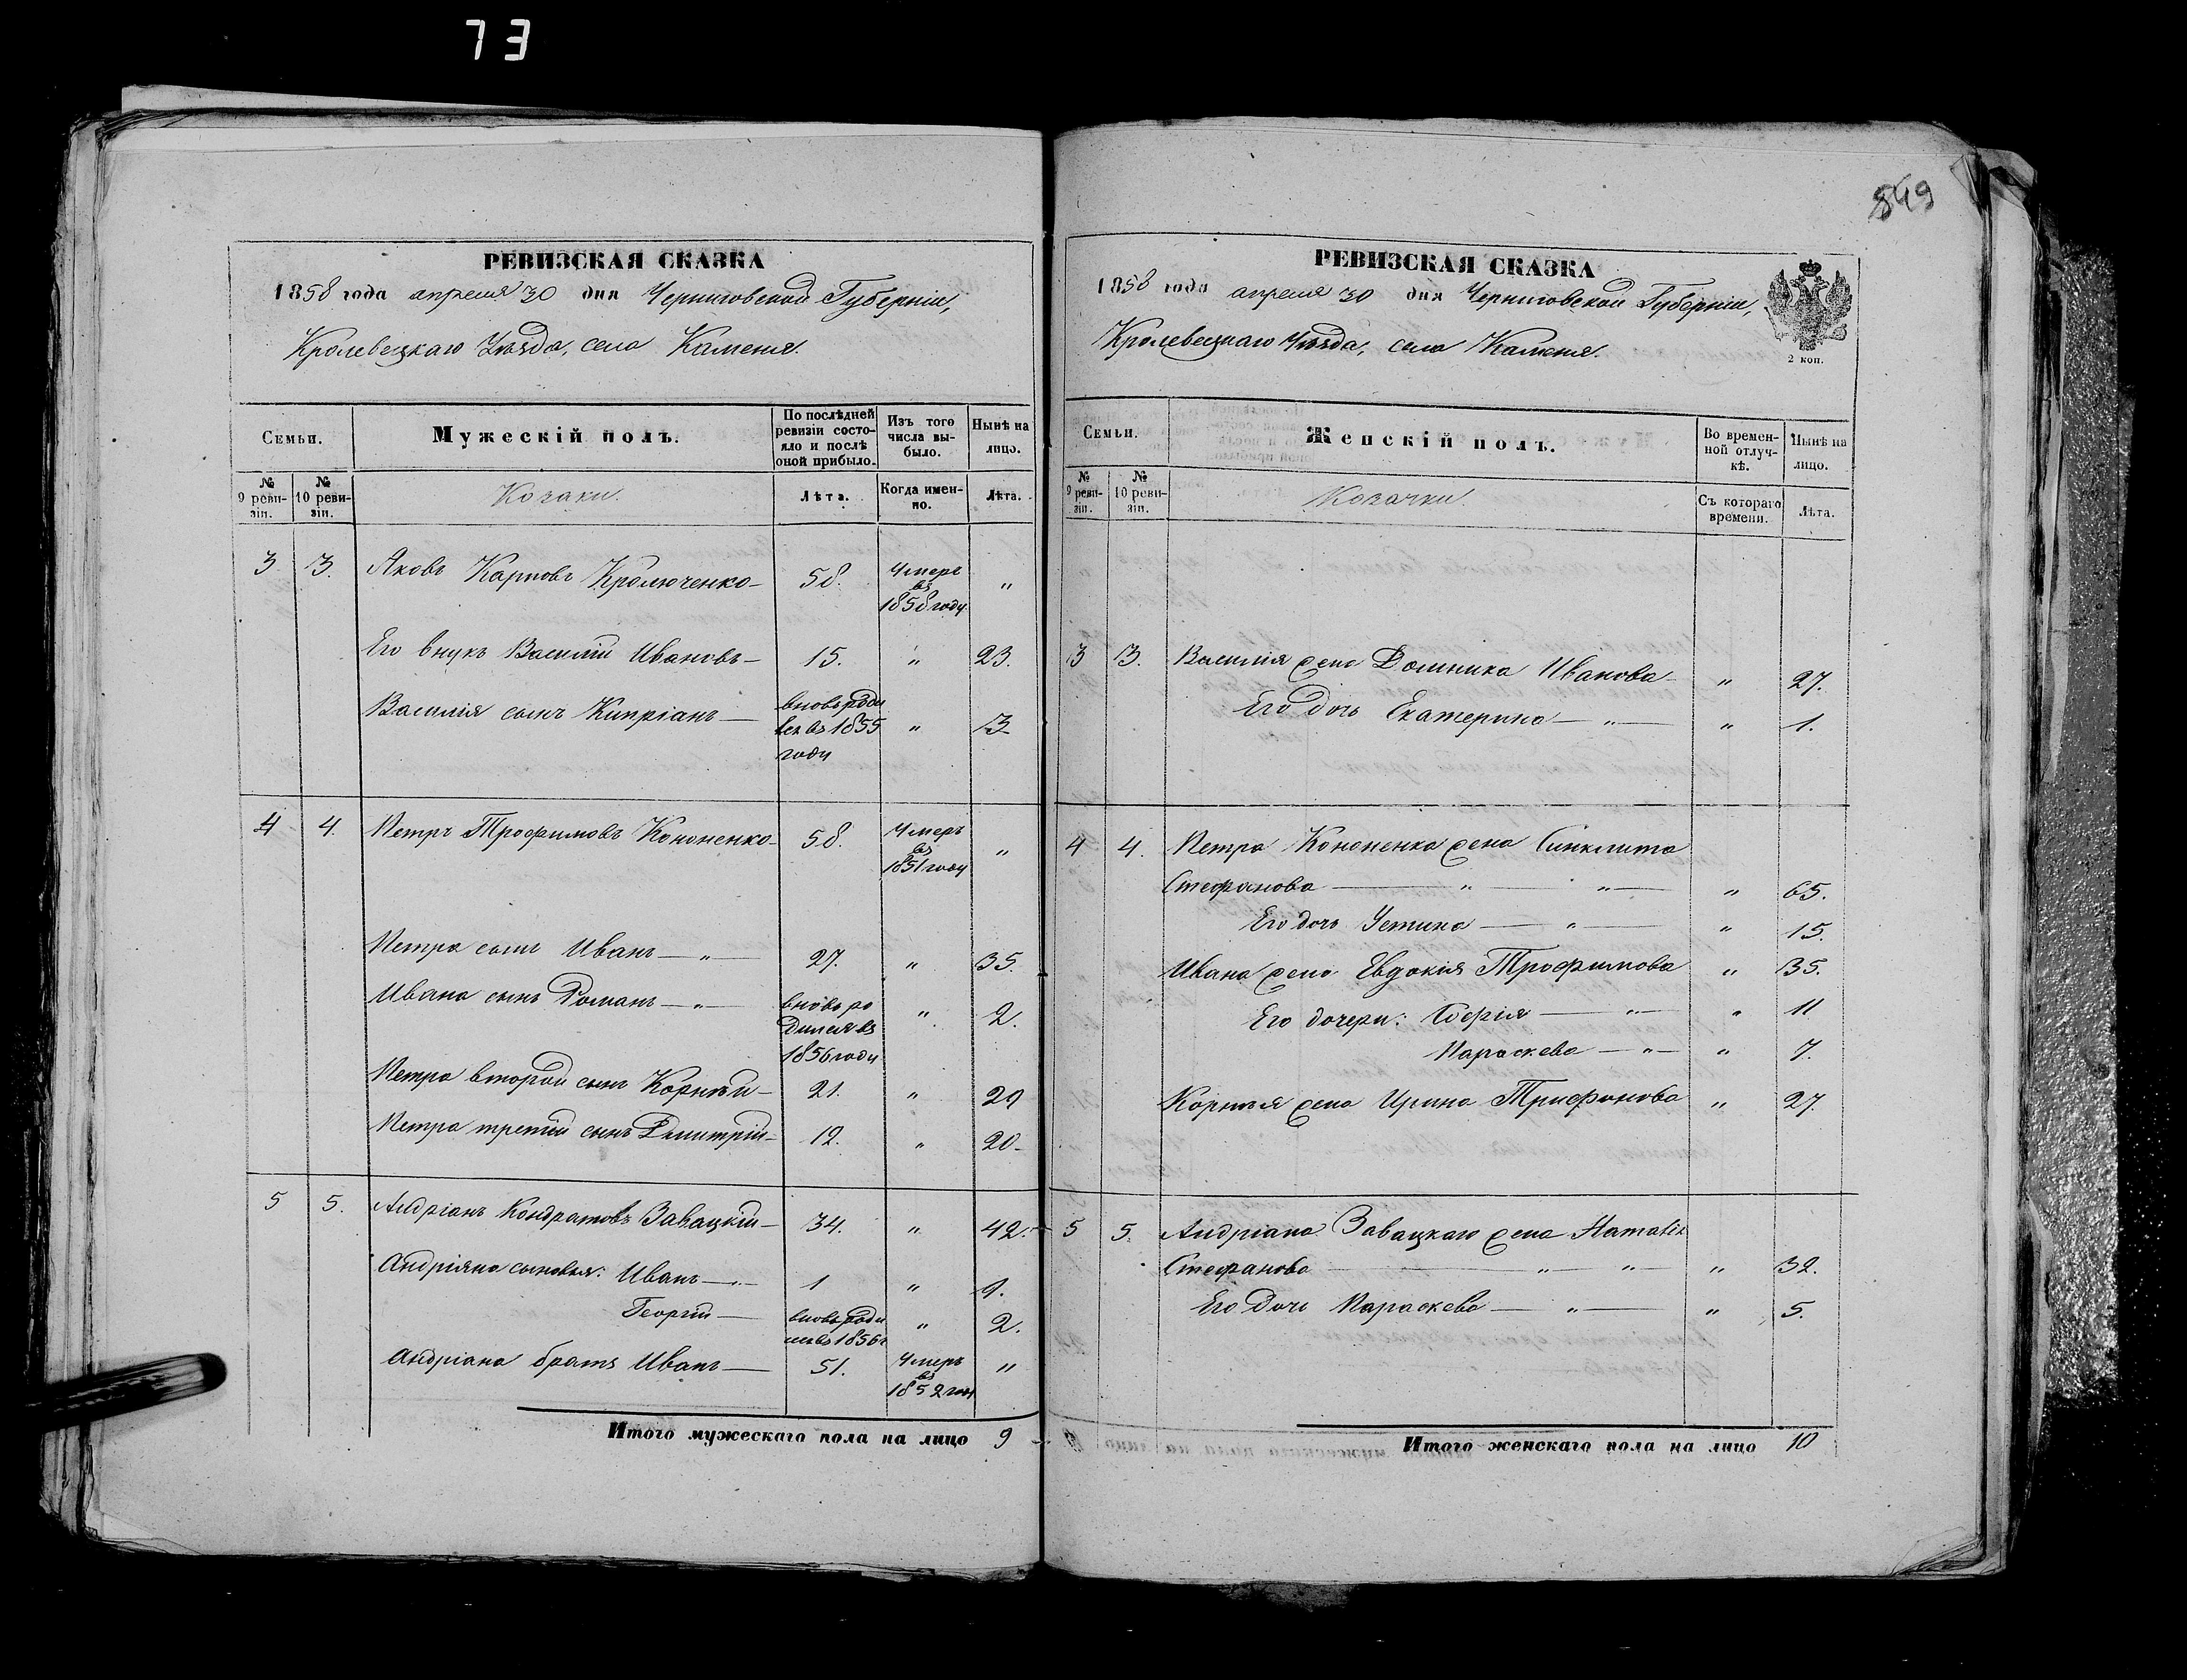 73
849
РЕВИЗСКАЯ СКАЗКА
1858 года апреля 30 дня Черниговской Губерніи,
Кролевецкаго Уѣзда, села Каменя.
Семьи.
Мужескій полъ.
По послѣдней ревизіи состояло и послѣ оной прибыло.
Изъ того числа выбыло.
Нынѣ на лицо.
№ 9 ревизіи.
№ 10 ревизіи.
Козаки.
Лѣта.
Когда именно.
Лѣта.
3 3. Яковъ Карповъ 58. Умеръ въ 1858 году "
Его внукъ Василій Ивановъ 15. " 23.
Василія сынъ Кипріанъ вновь родился въ 1855 году " 3
4 4. Петръ Трофимовъ Кононенко 58. Умеръ въ 1851 году "
Петра сынъ Иванъ " 27. " 35.
Ивана сынъ Романъ " вновь родился въ 1856 году " 2.
Петра второй сынъ Корнѣй 21. " 29
Петра третій сынъ Дмитрій 12. " 20
5 5. Андріанъ Кондратовъ Завацкій 34. " 42.
Андріяна сыновья: Иванъ " 1 " 9.
Георгій вновь родился въ 1856 г " 2.
Андріана братъ Иванъ 51. Умеръ въ 1852 году "
Итого мужескаго пола на лицо 9
РЕВИЗСКАЯ СКАЗКА
1858 года апреля 30 дня Черниговской Губерніи,
Кролевецкаго Уѣзда, села Каменя.
2 коп.
Семьи.
Женскій полъ.
Во временной отлучкѣ.
Нынѣ на лицо.
№ 9 ревизіи.
№ 10 ревизіи.
Козачки.
Съ котораго времени.
Лѣта.
3 3. Василія жена Домника Иванова " 27.
Его дочь Екатерина " " 1.
4 4. Петра Кононенка жена Синклита
Стефанова " " " 65.
Его дочь Устина " " 15.
Ивана жена Евдокія Трофимова " 35.
Его дочери: Софія " " 11
Параскева " " 7.
Корнѣя жена Ирина Трифонова " 27.
5 5. Андріана Завацкаго жена Наталія
Стефанова " " " 32.
Его дочь Параскева " " 5.
Итого женскаго пола на лицо 10